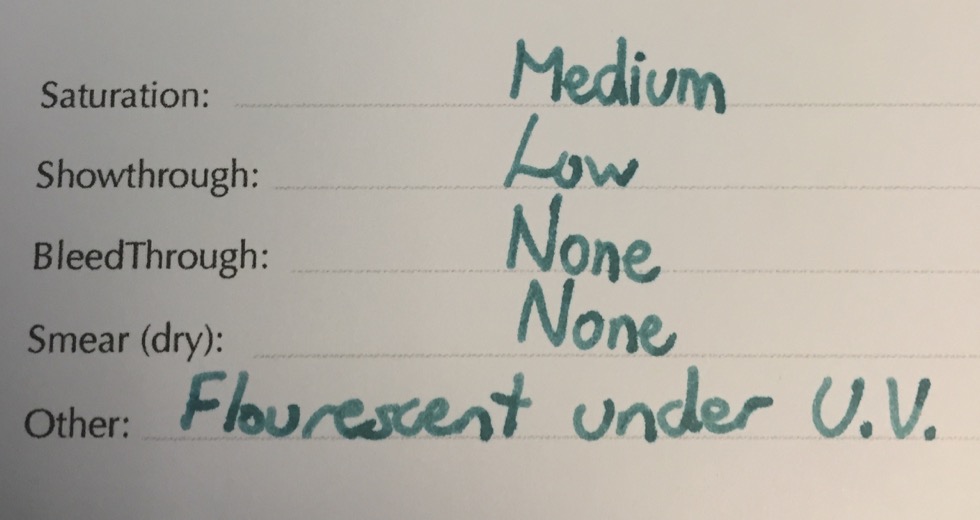 Saturation: Medium
Showthrough: Low
BleedThrough: None
Smear (dry): None
Other: Flourescent under U.V.